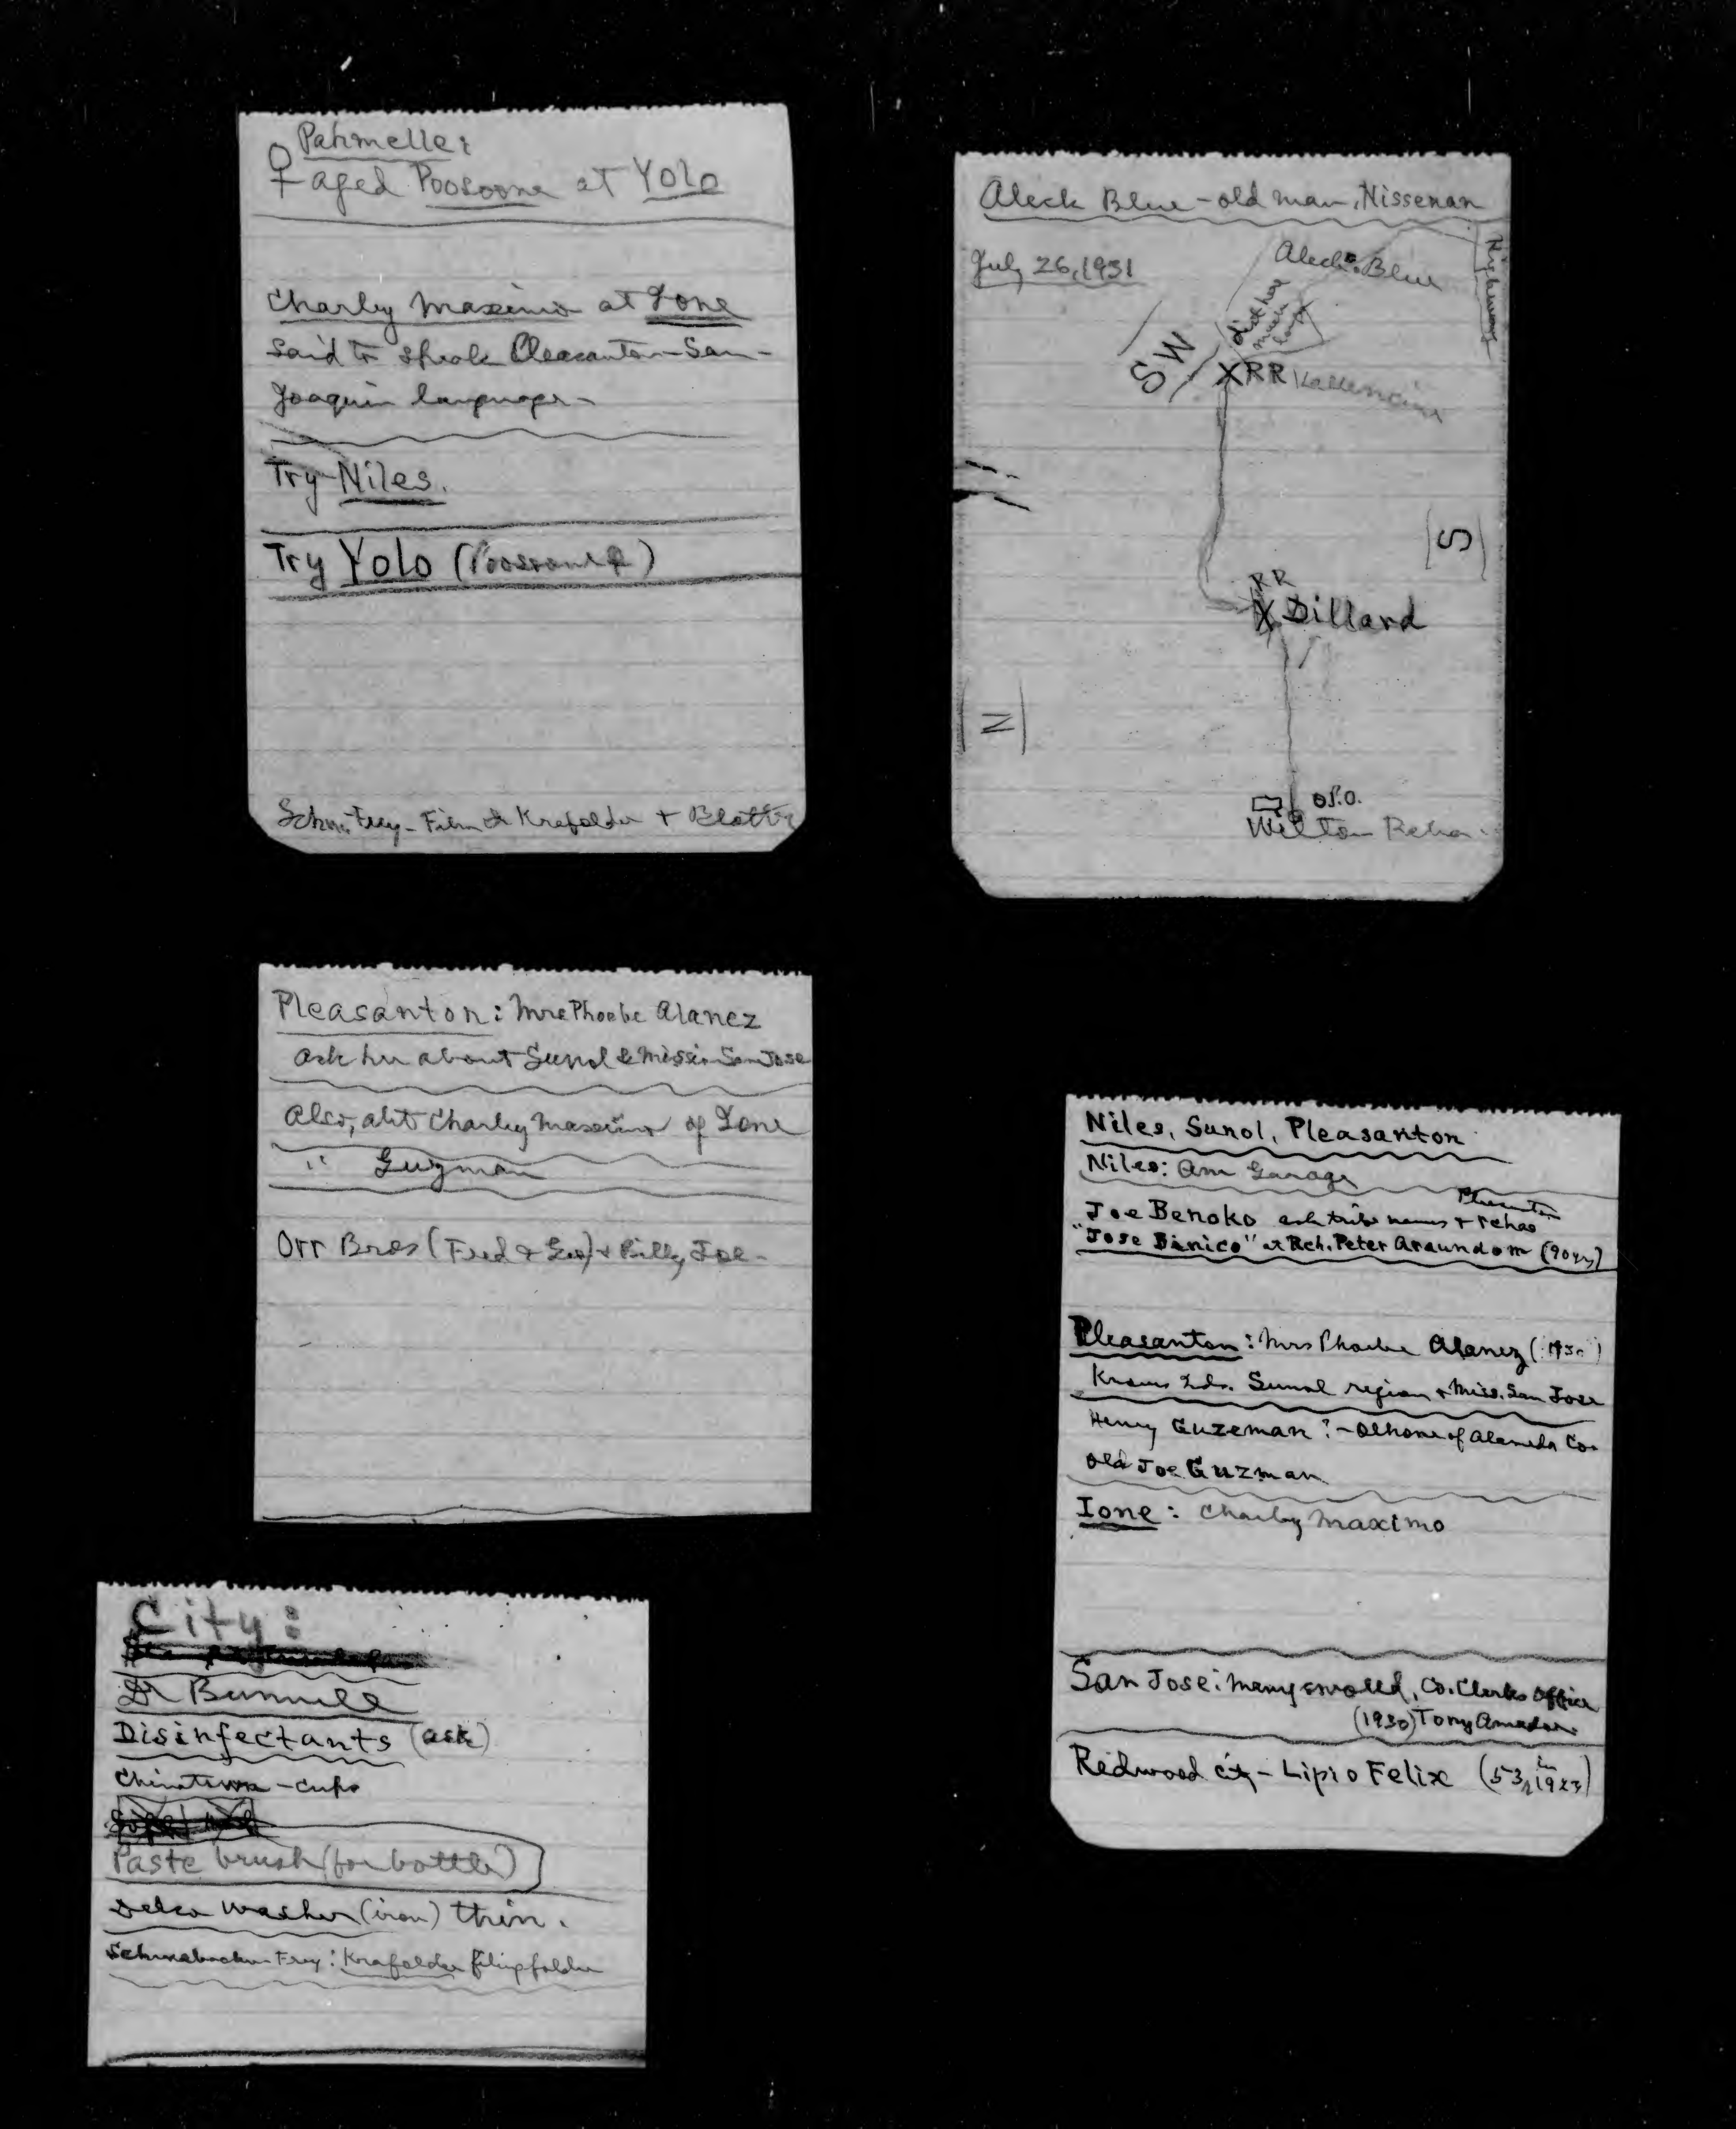 Pahmelle:
♀ aged Poosoone at Yolo
Charly Maximo at Ione
said to speak Pleasanton-San-
Joaquin language-
Try Niles.
Try Yolo (Poosoone ♀)
Film & Krafolder + Blotter
Aleck Blue - old man, Nissenan
July 26, 1931
Aleck Blue
Highway
SW
XRR
S
RR
X Dillard
N
O P.O.
Wilton Rcha.
Pleasanton: Mrs Phoebe Alanez
ask her about Sunol & Mission San Jose
Also, abt Charley Maximo of Ione
" Guzman
Orr Bros (Fred & Geo) & Billy Joe-
Niles, Sunol, Pleasanton
Niles: Am Garage
Pleasanton
Joe Benoko ask tribe names & rchas
"Jose Binico" at Rch. Peter Araundom (90 yrs)
Pleasanton: Mrs Phoebe Alanez (1930)
Knows Inds. Sunol region & Miss. San Jose
Henry Guzeman? - Olhone of Alameda Co.
old Joe Guzman
Ione: Charley Maximo
San Jose: Co. Clerks Office
(1930) Tony Amador
Redwood City - Lipio Felix (53 in 1923)
City:
Dr Bunnell
Disinfectants (ask)
Chinatown - cups
Paste brush (for bottle)
Delco washer (iron) thin.
Schwabacher Frey: Krafolder filing folder